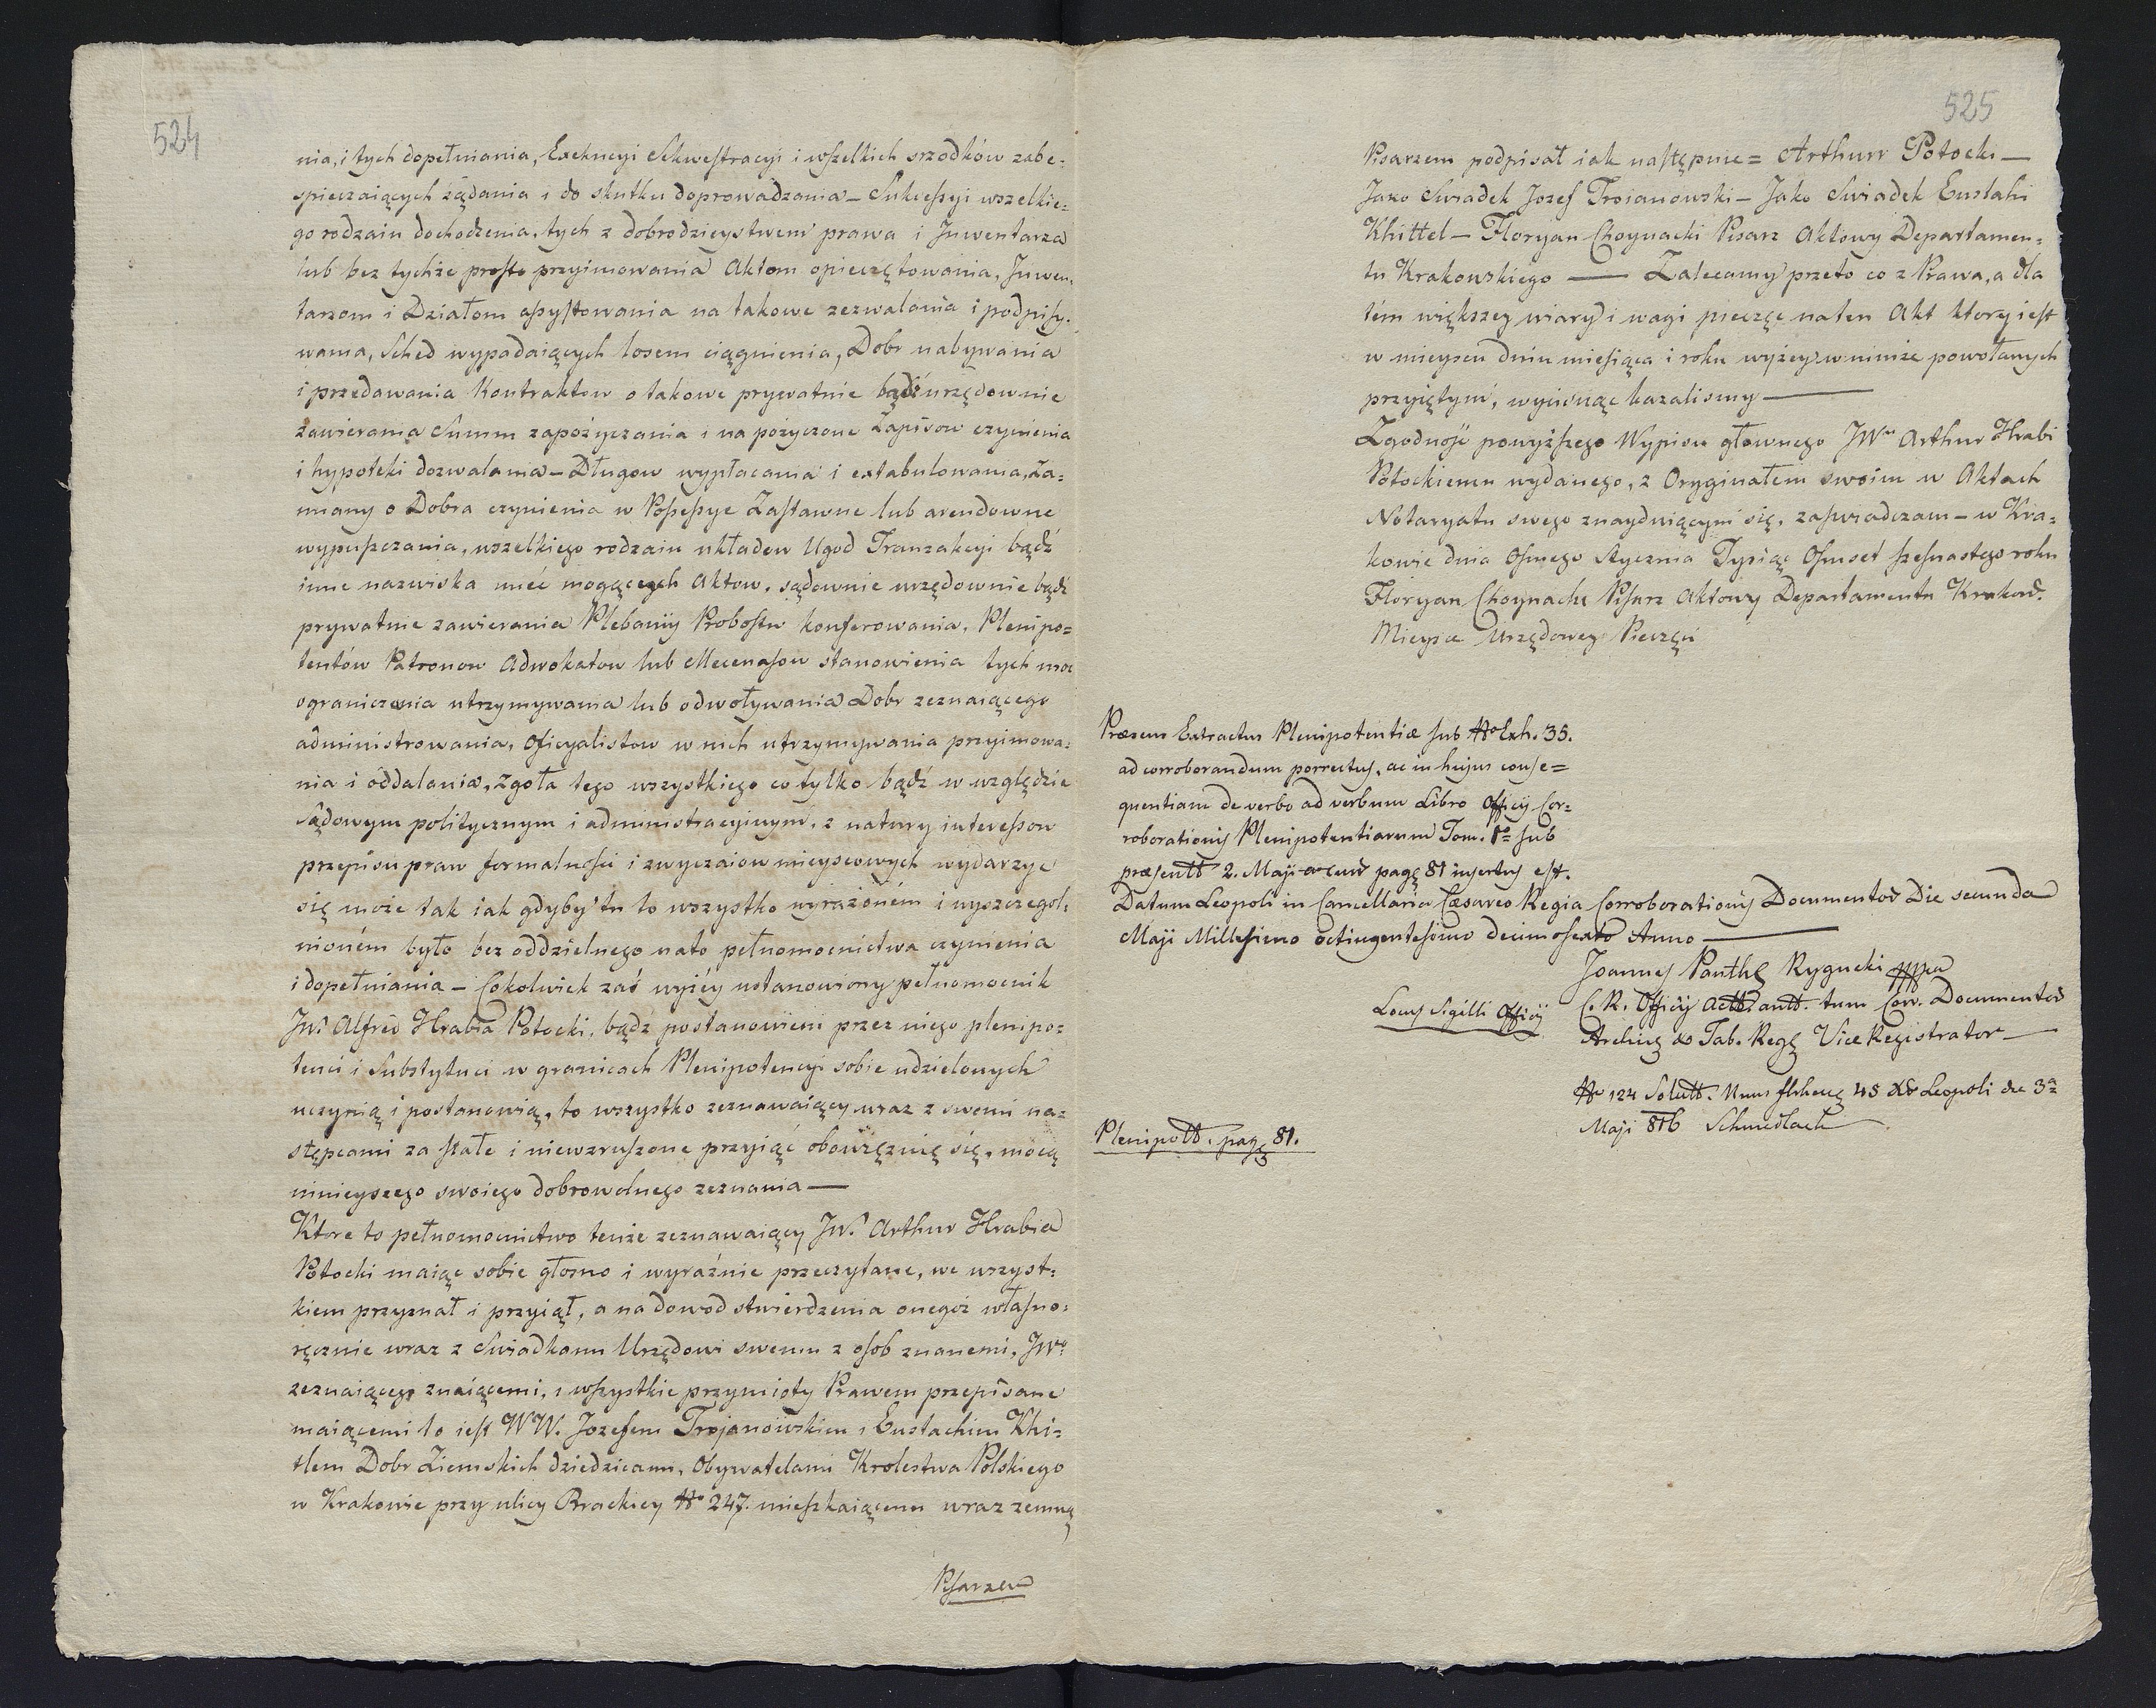 524
nia, i tych dopełniania, Exekucyi Sekwestracyi i wszelkich srzodków zabe=
spieczaiących żądania i do skutku doprowadzania – Sukcessyi wszelkie=
go rodzaiu dochodzenia, tych z dobrodzieystwem prawa i Inwentarza
lub bez tychże prosto przyimowania Aktom opieczętowania, Inwen=
tarzom i Działom assystowania na takowe zezwalania i podpisy=
wania, Sched wypadaiących losem ciągnienia, Dobr nabywania
i przedawania Kontraktow o takowe prywatnie bądź urzędownie
zawierania Summ zapożyczania i na pożyczone Zapisow czynienia
i hypoteki dozwalania – Długow wypłacania i extabulowania, Za=
miany o Dobra czynienia w Possessye Zastawne lub arendowne
wypuszczania, wszelkiego rodzaiu układow Ugod Tranzakcyi bądź
inne nazwiska mieć mogących Aktow, sądownie urzędownie bądź
prywatnie zawierania Plebanij Probostw konferowania, Plenipo=
tentów Patronow Adwokatow lub Mecenasow stanowienia tych moc
ograniczania utrzymywania lub odwoływania Dobr zeznaiącego
administrowania, Oficyalistow w nich utrzymywania przyimowa=
nia i oddalania, zgoła tego wszystkiego co tylko bądź w względzie
Sądowym politycznym i administracyinym, z natury interessow
przepisu praw formalności i zwyczaiow mieyscowych wydarzyć
się może tak iak gdyby tu to wszystko wyrażoném i wyszczegol=
nioném było bez oddzielnego nato pełnomocnictwa czynienia
i dopełniania – Cokolwiek zaś wyżéy ustanowiony pełnomocnik
JW. Alfred Hrabia Potocki, bądź postanowieni przez niego plenipo=
tenci i Substytuci w granicach Plenipotencyi sobie udzielonych
uczynią i postanowią, to wszystko zeznawaiący wraz z swemi na=
stępcami za stałe i niewzruszone przyiąć obowięznię się, mocą
ninieyszego swoiego dobrowolnego zeznania —
Ktore to pełnomocnictwo tenże zeznawaiący JW. Arthur Hrabia
Potocki maiąc sobie głosno i wyraźnie przeczytane, we wszyst=
kiem przyznał i przyiął, a na dowod stwierdzenia onegoż własno=
ręcznie wraz z Swiadkami Urzędowi swemu z osob znanemi, JWo
zeznaiącego znaiącemi, i wszystkie przymioty Prawem przepisane
maiącemi to iest WW. Jozefem Trojanowskim i Eustachim Khi=
tlem Dobr Ziemskich dziedzicami, Obywatelami Krolestwa Polskiego
w Krakowie przy ulicy Brackiey No 247. mieszkaiącemi wraz zemną
Pisarzem
525
Pisarzem podpisał iak następuie = Arthurr Potocki —
Jako Swiadek Jozef Troianowski – Jako Swiadek Eustahi
Khittel – Floryan Choynacki Pisarz Aktowy Departamen=
tu Krakowskiego — Zalecamy przeto co z Prawa, a dla
tém większey wiary i wagi pieczęc na ten Akt ktory iest
w mieyscu dniu miesiąca i roku wyżey w nimże powołanych
przyiętym, wycisnąc kazalismy —
Zgodność powyższego Wypisu głownego JWu Arthur Hrabi
Potockiemu wydanego, z Oryginałem swoim w Aktach
Notaryatu swego znayduiącym się, zaswiadczam – w Kra=
kowie dnia Osmego Stycznia Tysiąc Osmset szesnastego roku
Floryan Choynacki Pisarz Aktowy Departamentu Krakow.
Mieysce Urzędowey Pieczęci
Præsens Extractus Plenipotentiæ sub No Exh. 35.
ad corroborandum porrectus, ac in hujus conse=
quentiam de verbo ad verbum Libro Officij Cor=
roborationis Plenipotentiarum Tom. 1o sub
præsentt 2. Maji pagę 81 insertus est.
Datum Leopoli in Cancellaria Cæsareo Regia Corroborationis Documentor Die secunda
Maji Millesimo octingentesimo decimosexto Anno —
Joannes Rygucki
C. R. Officij antt. tum Corr. Documentor
Locus Sigilli Officij
Tab. Regę Vice Registrator —
No 124 45 Xr Leopoli die 3a
Maji 816
Plenipott. pagę 81.